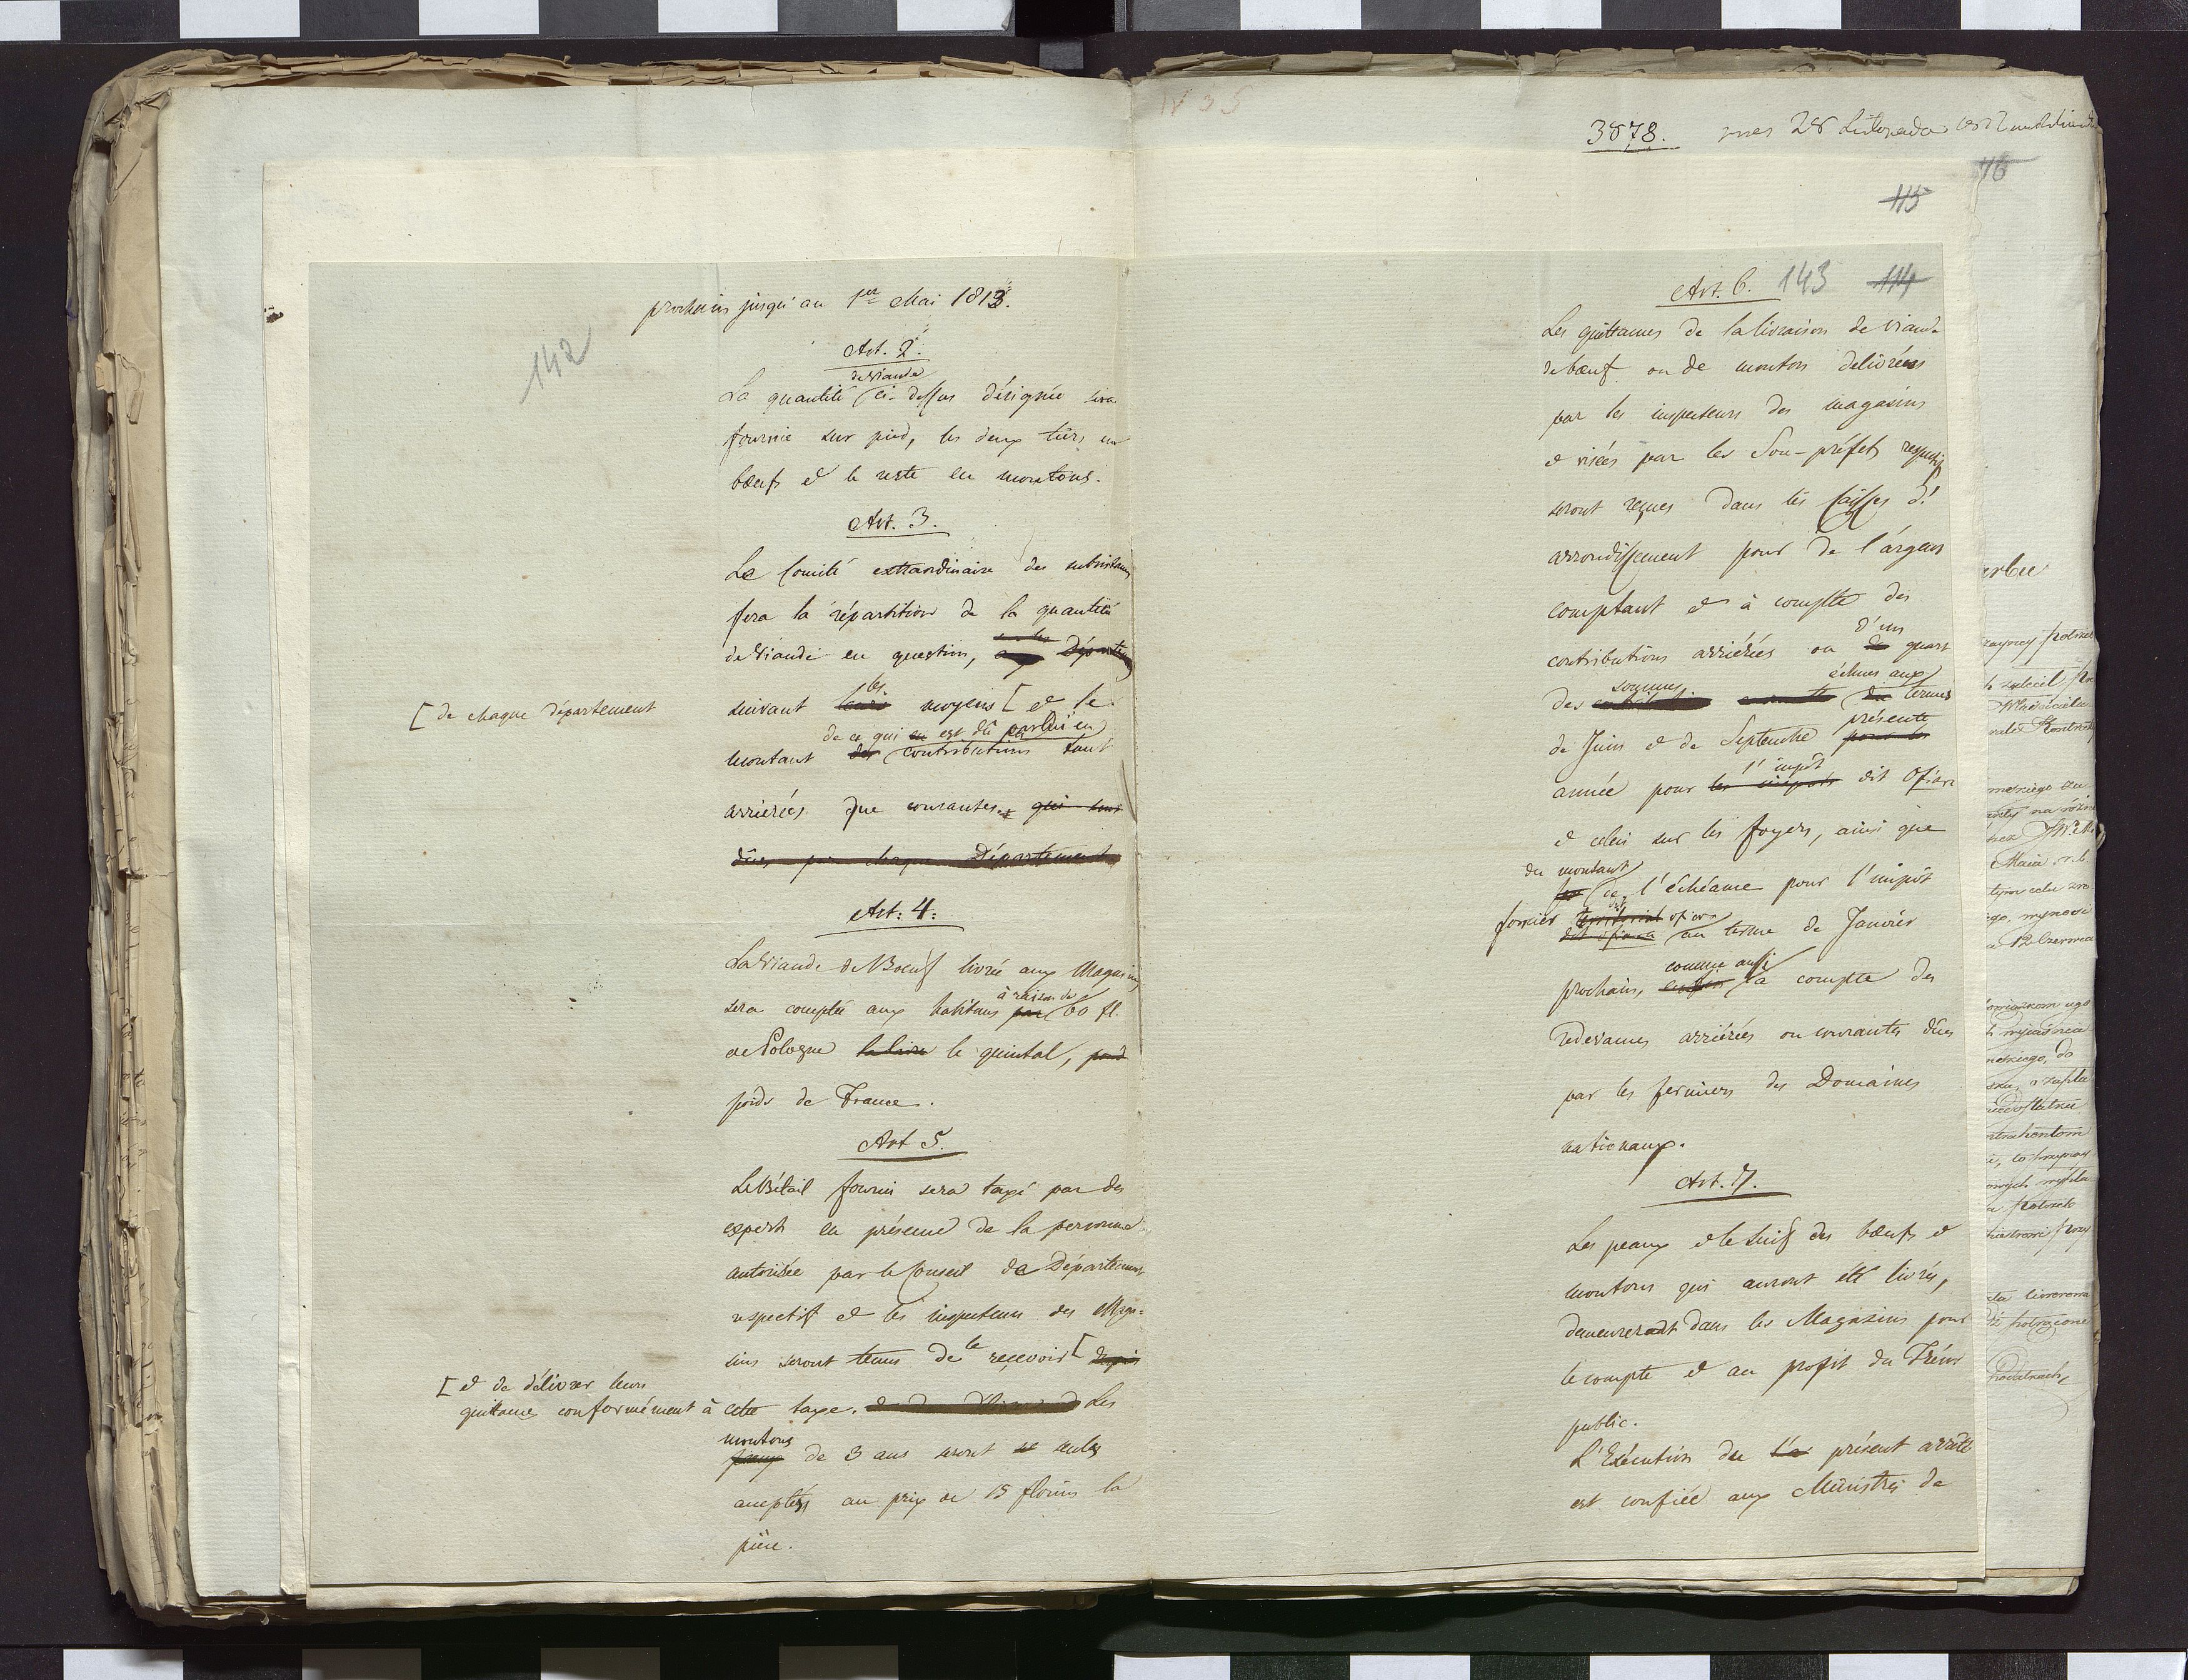 142
prochain jusqu'au 1er Mai 1813.
Art. 2.
de viande
La quantité ci-dessus désignée sera
fournie sur pied, les deux tiers en
bœufs et le reste en moutons.
Art. 3.
Le Comité extraordinaire des subsistances
fera la répartition de la quantité
de viande en question, aux Départemens
sur les
les
suivant leurs moyens [ et le
[ de chaque département
de ce qui en est dû par lui en
montant des contributions tant
arriérées que courantes. qui sont
dûes par chaque Département
Art: 4:
La viande de Bœuf livrée aux Magasins
à raison de
sera comptée aux habitans par 60 fl.
de Pologne la livre le quintal, poid
poids de France.
Art 5.
Le Bétail fourni sera taxé par des
experts en présence de la personne
autorisée par le Conseil de Département
respectif et les inspecteurs des Maga-
sins seront tenus de le recevoir [ depuis
[ et de délivrer leurs
quittances conformément à cette taxe. Les
moutons
de 3 ans seront seuls
acceptés au prix de 15 florins la
pièce.
3878.
76
115
143 114
Art. 6.
Les quittances de la livraison de viande
de bœuf ou de mouton délivrées
par les inspecteurs des magasins
et visées par les Sou-préfets respectifs
seront reçues dans les Caisses d'
arrondissement pour de l'argent
comptant et à compte des
d'un
contributions arriérées ou de quart
sommes échues aux
des contributions courante du termes
de Juin et de Septembre pour les
présente
l'impôt
année pour les impots dit Ofiara
et celui sur les foyers, ainsi que
du montant
de l'échéance pour l'impôt
foncier territorial ofiara
dit ofiara au terme de Janvier
comme aussi
prochain, enfin à compte des
redevances arriérées ou courantes dûes
par les fermiers des Domaines
nationaux.
Art. 7.
Les peaux et le suif des bœufs et
moutons qui auront été livrés,
demeureront dans les Magasins pour
le compte et au profit du Trésor
public.
L'Exécution du présent arrêté
est confiée aux Ministres de